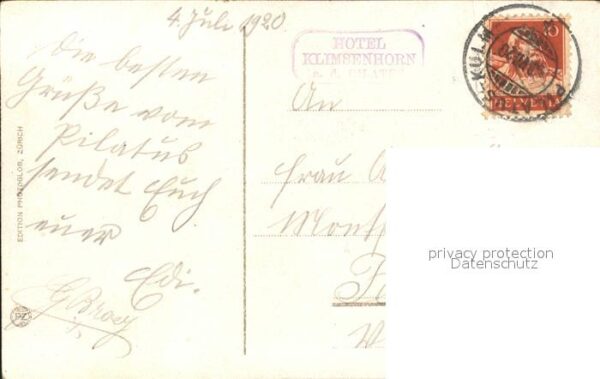 4. Juli 1920
Die besten
Grüße vom
Pilatus
sendet Euch
euer
Edi.
EDITION PHOTOGLOB, ZÜRICH
PZ
HOTEL
KLIMSENHORN
KULM
10
HELVETIA
An
Frau
privacy protection
Datenschutz